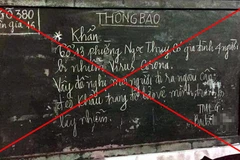 SỐ 380
THÔNG BÁO
* Khẩn
Tổ 13 phường Ngọc Thụy có gia đình 4 người
bị nhiễm Virus Corona.
Vậy đề nghị mọi người đi ra ngoài cần
đeo khẩu trang để bảo vệ mình, tránh
lây nhiễm.